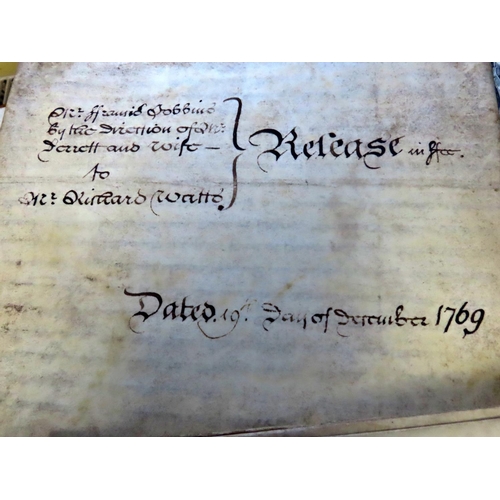 Mr. ffrancis Gobbins
by the direction of Mr.
Derrett and Wife —
to
Mr. Richard Watts
Release in ffee.
Dated 19th. Day of December 1769